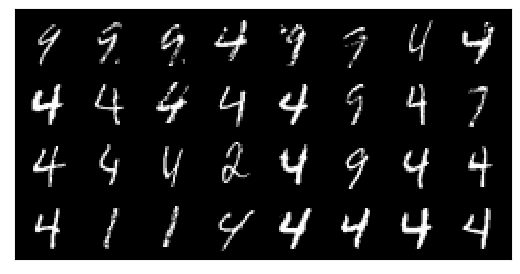 9 9 9 4 9 9 4 4
4 4 4 4 4 9 4 7
4 4 4 2 4 9 4 4
4 1 1 4 4 4 4 4